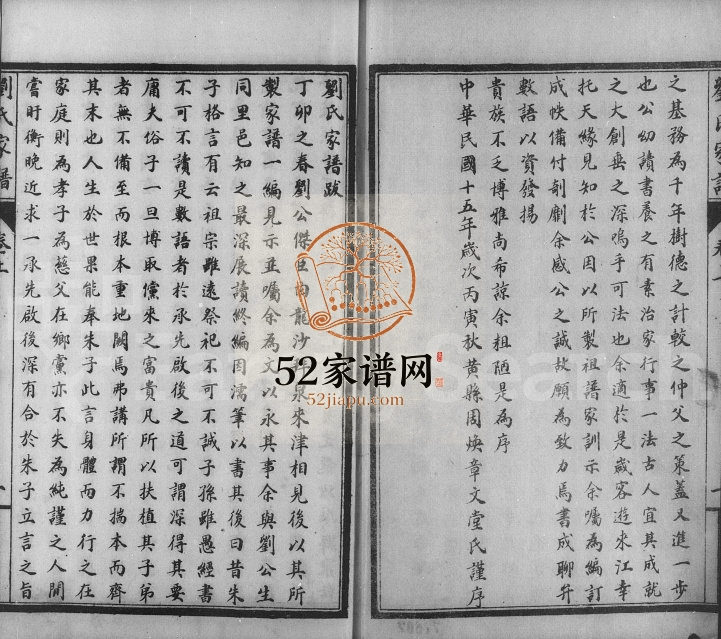 之基務為千年樹德之計較之仲父之策蓋又進一步
也公幼讀書養之有素治家行事一法古人宜其成就
之大創垂之深嗚乎可法也余適於是歲客遊來江幸
托天緣見知於公因以所製祖譜家訓示余囑為編訂
成帙備付剞劂余感公之誠故願為致力焉書成聊弁
數語以資發揚
貴族不乏博雅尚希諒余粗陋是為序
中華民國十五年歲次丙寅秋黃縣周煥章文堂氏謹序
劉氏家譜跋
丁卯之春劉公傑 龍沙 來津相見後以其所
製家譜一編見示並囑余為文以永其事余與劉公生
同里邑知之最深展讀終編因濡筆以書其後曰昔朱
子格言有云祖宗雖遠祭祀不可不誠子孫雖愚經書
不可不讀是數語者於承先啟後之道可謂深得其要
庸夫俗子一旦博取儻來之富貴凡所以扶植其子弟
者無不備至而根本重地闕焉弗講所謂不揣本而齊
其末也人生於世果能奉朱子此言身體而力行之在
家庭則為孝子為慈父在鄉黨亦不失為純謹之人閒
嘗盱衡晚近求一承先啟後深有合於朱子立言之旨
劉氏家譜
52家谱网
52jiapu.com